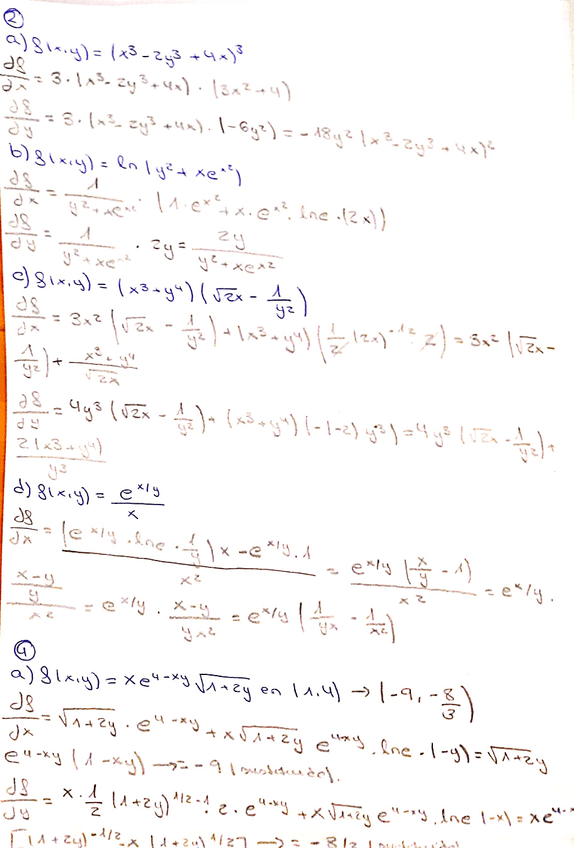 ②
a) f(x,y) = (x³ - 2y³ + 4x)³
df/dx = 3 · (x³ - 2y³ + 4x) · (3x² + 4)
df/dy = 3 · (x³ - 2y³ + 4x) · (-6y²) = -18y² (x³ - 2y³ + 4x)²
b) f(x,y) = ln (y² + xe^x²)
df/dx = 1/(y² + xe^x²) · (1 · e^x² + x · e^x² · lne · (2x))
df/dy = 1/(y² + xe^x²) · 2y = 2y/(y² + xe^x²)
c) f(x,y) = (x³ + y⁴) (√2x - 1/y²)
df/dx = 3x² (√2x - 1/y²) + (x³ + y⁴) (1/2 (2x)^-1/2 · 2) = 3x² (√2x -
1/y²) + (x³ + y⁴)/√2x
df/dy = 4y³ (√2x - 1/y²) + (x³ + y⁴) (-(-2) y³) = 4y³ (√2x - 1/y²) +
2(x3 + y⁴)/y³
d) f(x,y) = e^x/y / x
df/dx = ((e^x/y · lne · 1/y) x - e^x/y · 1)/x² = e^x/y (x/y - 1)/x² = e^x/y ·
((x-y)/y)/x² = e^x/y · (x-y)/yx² = e^x/y (1/yx - 1/x²)
④
a) f(x,y) = xe^4-xy √1+2y en (1,4) → (-9, -8/3)
df/dx = √1+2y · e^4-xy + x√1+2y e^4-xy · lne · (-y) = √1+2y
e^4-xy (1-xy) → = -9 (sustitución).
df/dy = x · 1/2 (1+2y)^1/2-1 · 2 · e^4-xy + x√1+2y e^4-xy · lne (-x) = xe^4-x
[(1+2y)^-1/2 - x (1+2y)^1/2] → = -8/3